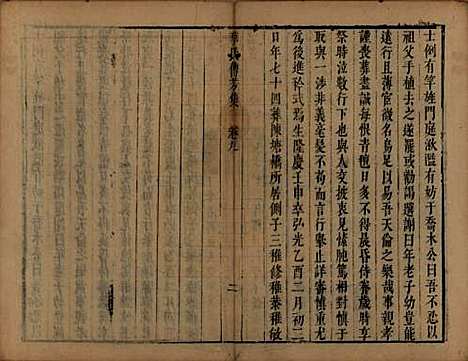 士例有竿旌門庭湫隘有妨于喬木公曰吾不忍以
祖父手植去之遂罷或勸謁選謝曰年老子幼豈能
遠行且薄宦微名烏足以易吾天倫之樂哉事親孝
謹喪葬盡誠每恨青氊日多不得晨昏侍養歲時享
祭時泣數行下與人交披衷見愫胞篤相對慎于
取與一涉非義毫髮不苟而言行舉止詳審慎重尤
爲後進矜式焉生隆慶壬申卒弘光乙酉二月初三
日年七十四葬陳塘橋所居側子三稚修稚葉稚敏
華氏傳芳集
卷九
二